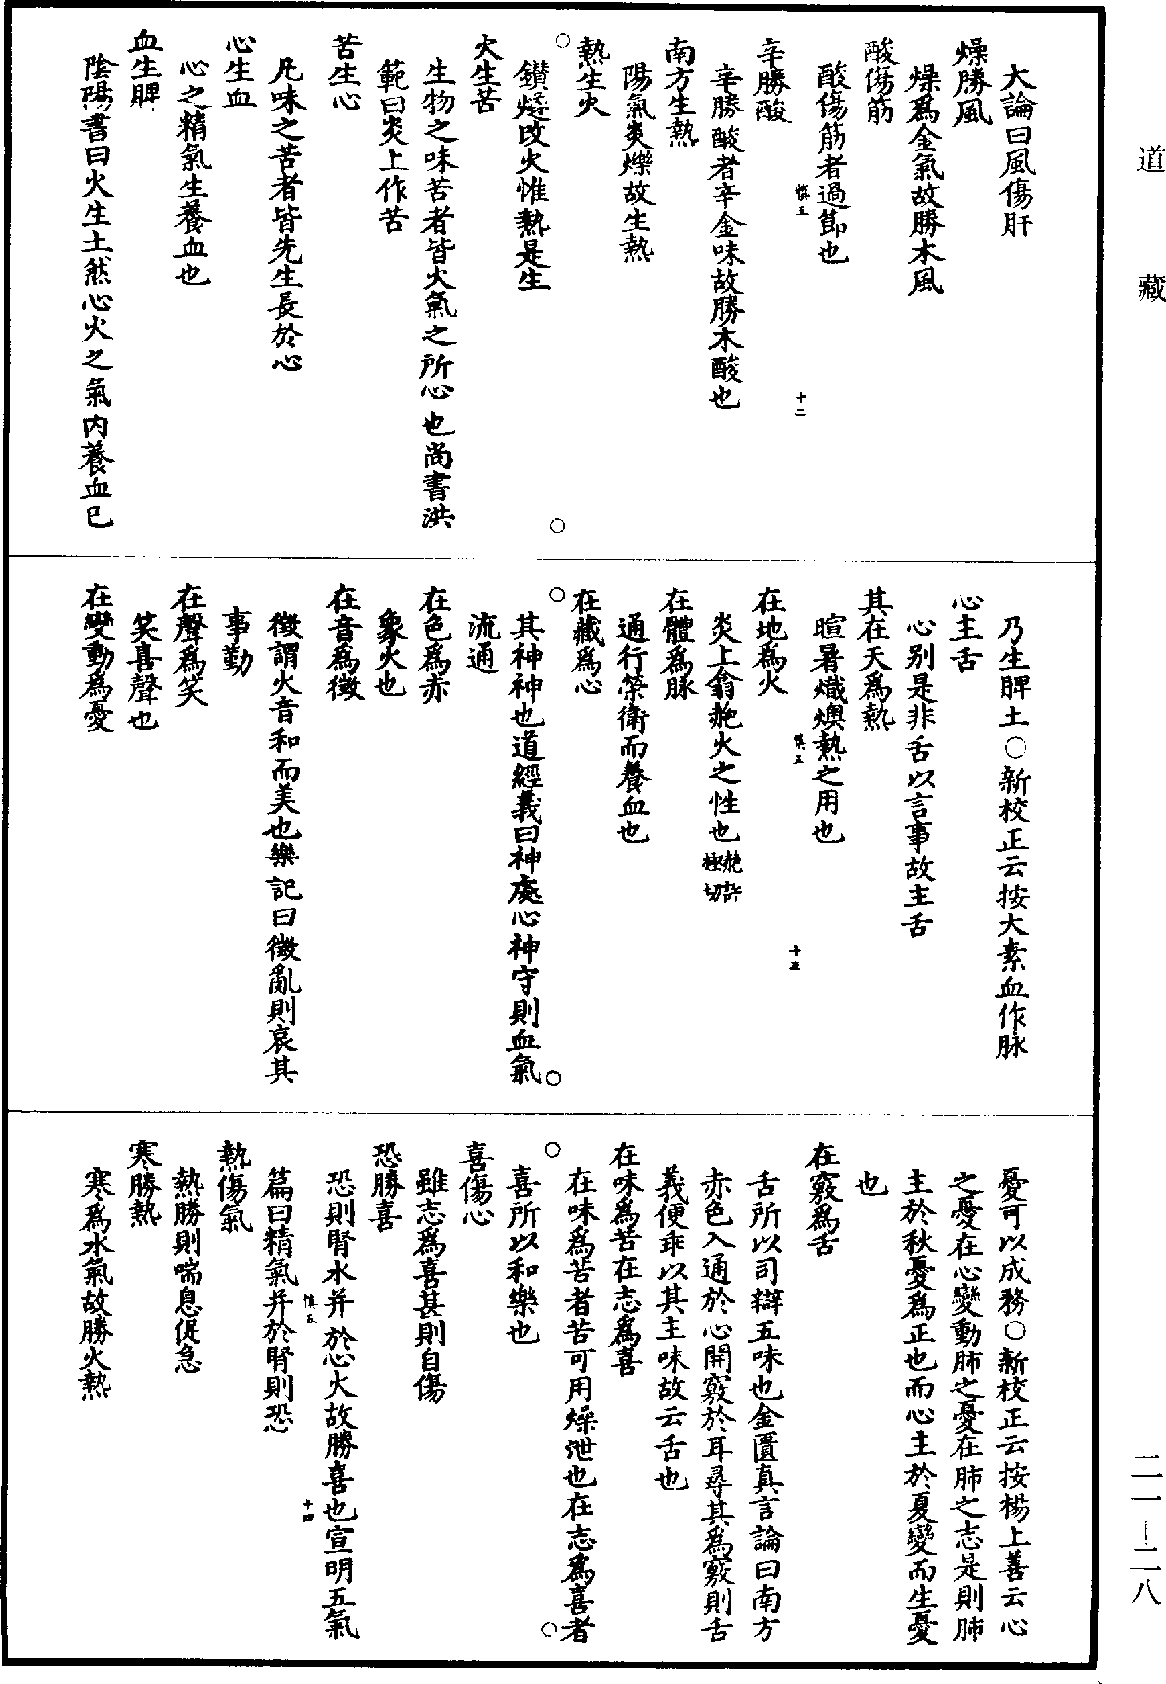 道藏
大論曰風傷肝
燥勝風
燥爲金氣故勝木風
酸傷筋
酸傷筋者過節也
慎五 十二
辛勝酸
辛勝酸者辛金味故勝木酸也
南方生熱
陽氣炎爍故生熱
熱生火
鑚燧改火惟熱是生
火生苦
生物之味苦者皆火氣之所心也尚書洪
範曰炎上作苦
苦生心
凡味之苦者皆先生長於心
心生血
心之精氣生養血也
血生脾
陰陽書曰火生土然心火之氣内養血已
乃生脾土○新校正云按大素血作脉
心主舌
心别是非舌以言事故主舌
其在天爲熱
暄暑熾燠熱之用也
慎五 十三
在地爲火
炎上翕赩火之性也赩許極切
在體爲脉
通行榮衛而養血也
在藏爲心
其神神也道經義曰神處心神守則血氣
流通
在色爲赤
象火也
在音爲徵
徵謂火音和而美也樂記曰徵亂則哀其
事勤
在聲爲笑
笑喜聲也
在變動爲憂
憂可以成務○新校正云按楊上善云心
之憂在心變動肺之憂在肺之志是則肺
主於秋憂爲正也而心主於夏變而生憂
也
在竅爲舌
舌所以司辯五味也金匱真言論曰南方
赤色入通於心開竅於耳尋其爲竅則舌
義便乖以其主味故云舌也
在味爲苦在志爲喜
在味爲苦者苦可用燥泄也在志爲喜者
喜所以和樂也
喜傷心
雖志爲喜甚則自傷
恐勝喜
恐則腎水并於心火故勝喜也宣明五氣
慎五 十四
篇曰精氣并於腎則恐
熱傷氣
熱勝則喘息促急
寒勝熱
寒爲水氣故勝火熱
二一—二八